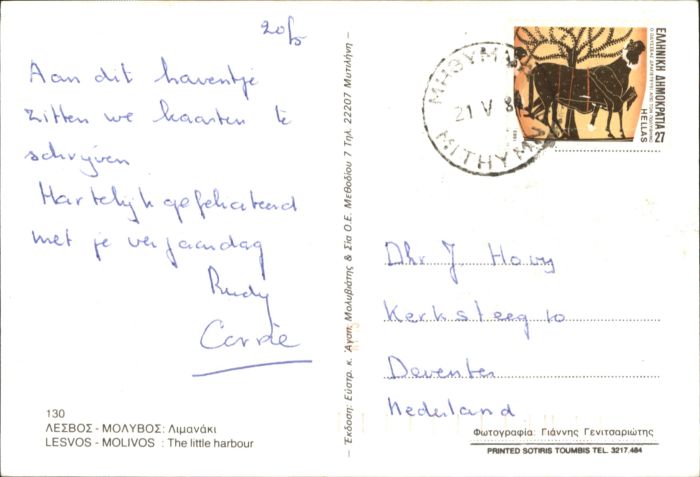 20/5
Aan dit haventje
zitten we kaarten te
schrijven
Hartelijk gefeliciteerd
met je verjaardag
Rudy
Corrie
130
ΛΕΣΒΟΣ - ΜΟΛΥΒΟΣ: Λιμανάκι
LESVOS - MOLIVOS : The little harbour
— Έκδοση: Εύστρ. κ. Άγαπ. Μολυβιάτης & Σία Ο.Ε. Μεθοδίου 7 Τηλ. 22207 Μυτιλήνη —
ΜΗΘΥΜΝ
21 V 8
MITHYMN
ΕΛΛΗΝΙΚΗ ΔΗΜΟΚΡΑΤΙΑ
HELLAS 27
Dhr J. Houy
Kerksteeg 10
Deventer
Nederland
Φωτογραφία: Γιάννης Γενιτσαριώτης
PRINTED SOTIRIS TOUMBIS TEL. 3217.464